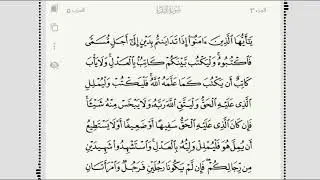 يَٰٓأَيُّهَا ٱلَّذِينَ ءَامَنُوٓا۟ إِذَا تَدَايَنتُم بِدَيْنٍ إِلَىٰٓ أَجَلٍ مُّسَمًّى
فَٱكْتُبُوهُ وَلْيَكْتُب بَّيْنَكُمْ كَاتِبٌۢ بِٱلْعَدْلِ وَلَا يَأْبَ
كَاتِبٌ أَن يَكْتُبَ كَمَا عَلَّمَهُ ٱللَّهُ فَلْيَكْتُبْ وَلْيُمْلِلِ
ٱلَّذِى عَلَيْهِ ٱلْحَقُّ وَلْيَتَّقِ ٱللَّهَ رَبَّهُۥ وَلَا يَبْخَسْ مِنْهُ شَيْـًٔا
فَإِن كَانَ ٱلَّذِى عَلَيْهِ ٱلْحَقُّ سَفِيهًا أَوْ ضَعِيفًا أَوْ لَا يَسْتَطِيعُ
أَن يُمِلَّ هُوَ فَلْيُمْلِلْ وَلِيُّهُۥ بِٱلْعَدْلِ وَٱسْتَشْهِدُوا۟ شَهِيدَيْنِ
مِن رِّجَالِكُمْ فَإِن لَّمْ يَكُونَا رَجُلَيْنِ فَرَجُلٌ وَٱمْرَأَتَانِ